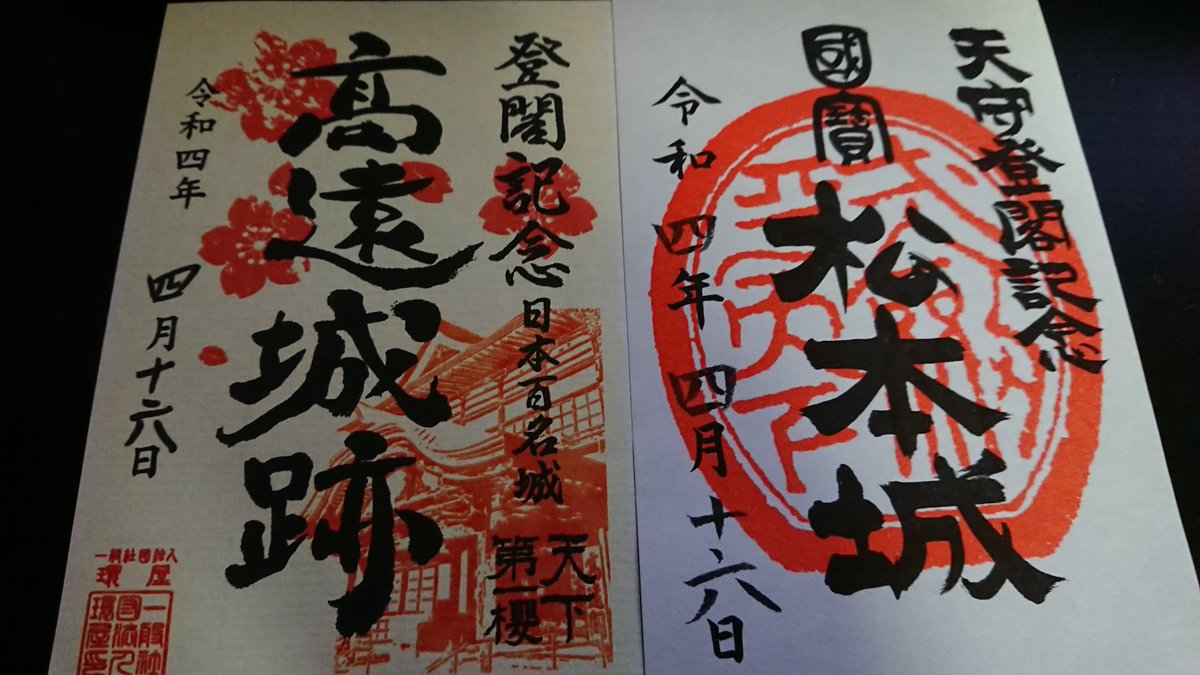 天守登閣記念
國寶
松本城
令和 四年 四月 十六日
登閣記念 日本百名城
天下
第一櫻
高遠城跡
令和四年 四月十六日
一般社団法人
環屋